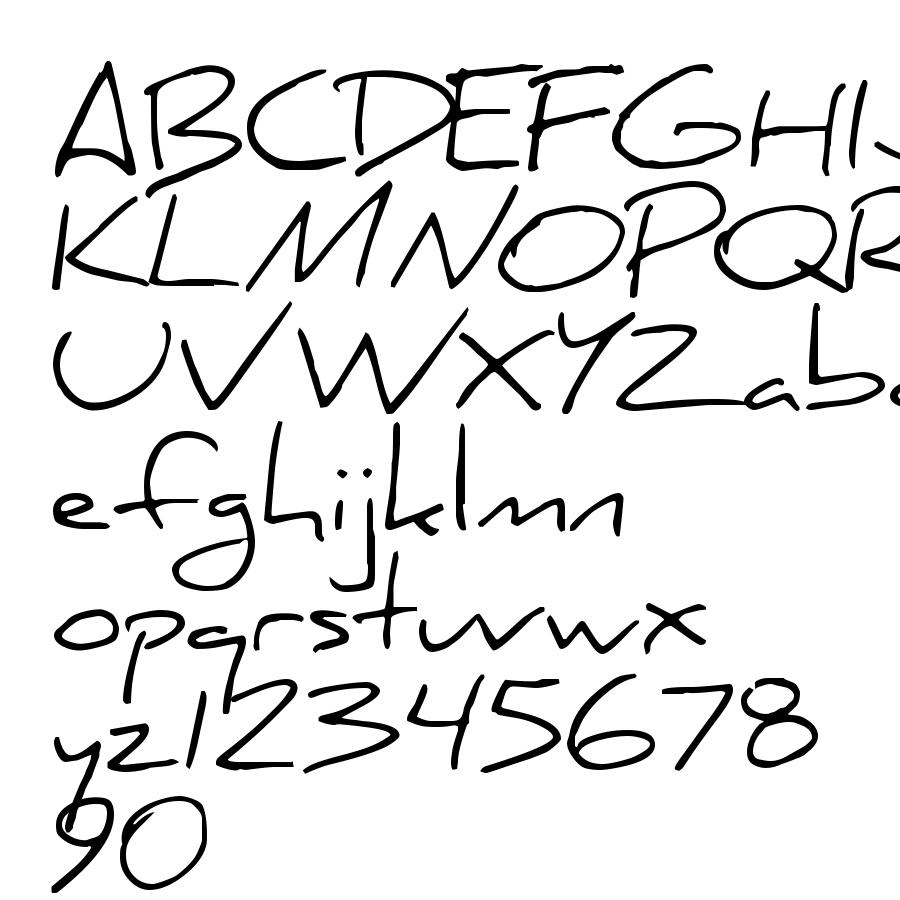 ABCDEFGHI
KLMNOPQR
UVWXYZab
efghijklmn
opqrstuvwx
yz12345678
90